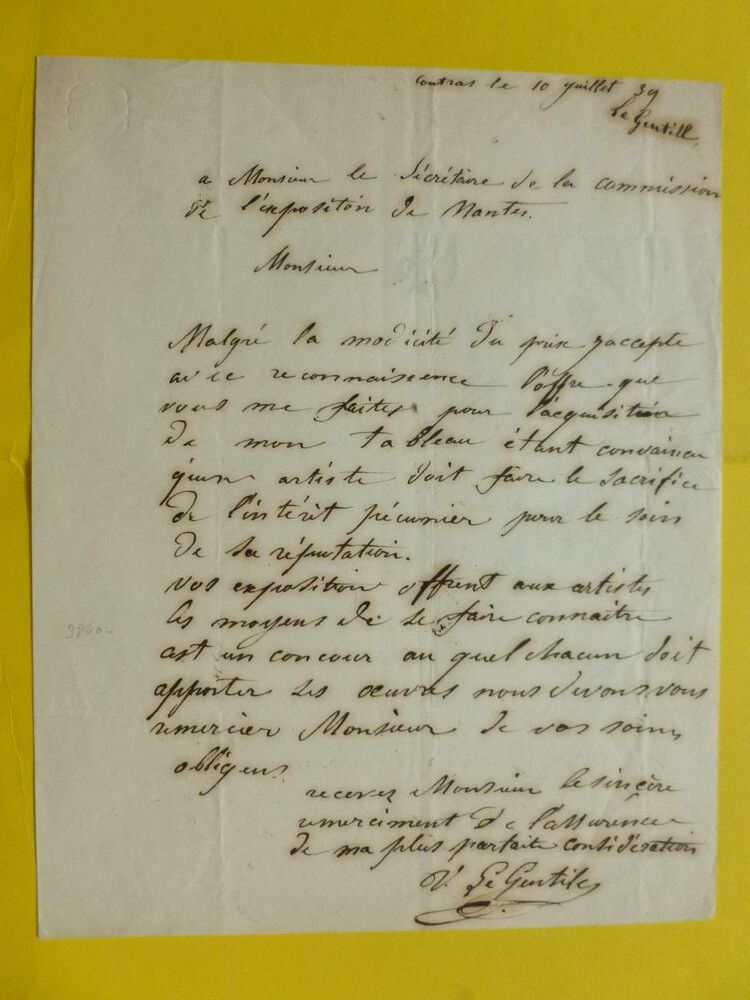 Contras le 10 juillet 39
Le Gentill
a Monsieur le Sécrétaire de la commission
de l'exposition de Nantes.
Monsieur
Malgré la modicité du prix j'accepte
avec reconnaissence l'offre que
vous me faites pour l'acquisition
de mon tableau étant convaincu
qu'un artiste doit faire le sacrifice
de l'intérêt pécunier pour le soin
de sa réputation.
vos exposition offrent aux artistes
les moyens de se faire connaitre
cest un concour au quel chacun doit
apporter ses œuvres nous devons vous
remercier Monsieur de vos soins
obligens
recevez Monsieur le sincère
remerciment de l'assurence
de ma plus parfaite considération
V. Le Gentile
3860-